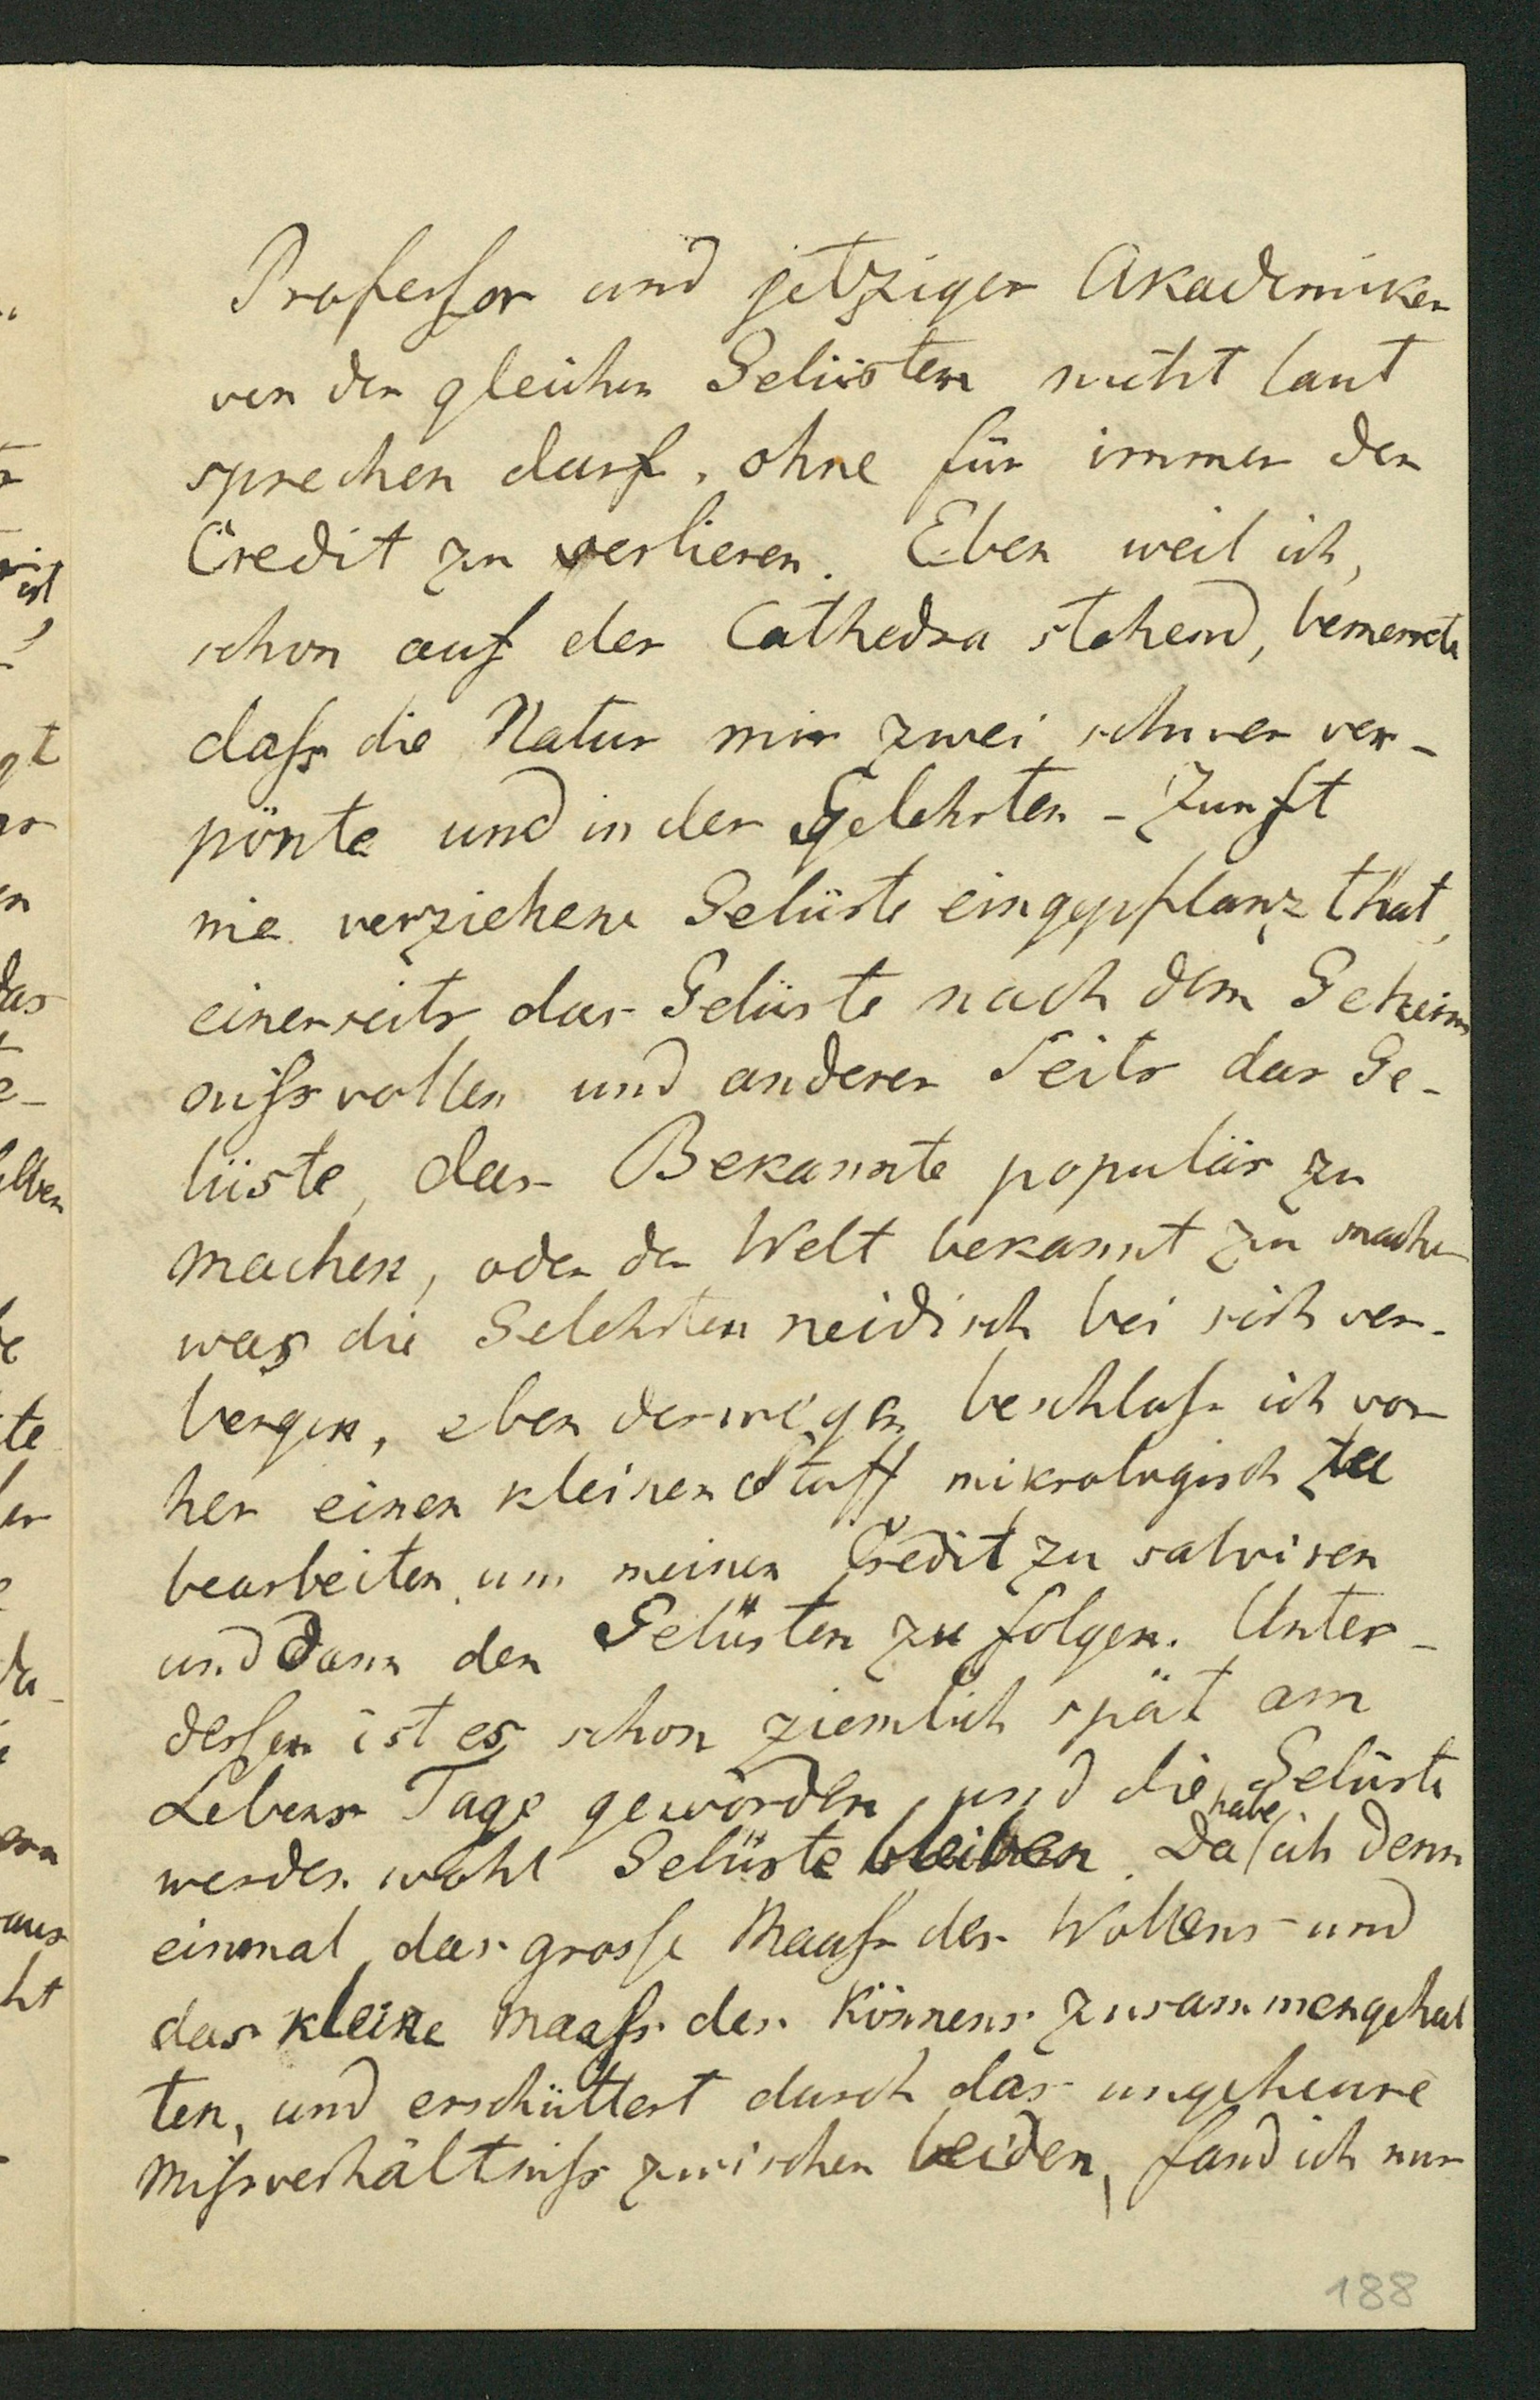 Professor und jetziger Akademiker
von der gleichen Gelüsten nicht laut
sprechen darf, ohne für immer den
Credit zu verlieren. Eben weil ich,
schon auf der Cathedra stehend, bemerkte
dass die Natur mir zwei schwer ver-
pönte und in der Gelehrten-Zunft
nie verziehene Gelüste eingepflanzt hat,
einerseits das Gelüste nach dem Geheim
nissvollen und anderer Seits das Ge-
lüste, das Bekannte populär zu
machen, oder der Welt bekannt zu machen
was die Gelehrten neidisch bei sich ver-
bergen, eben deswegen beschloss ich vor
her einen kleinen Stoff mikrologisch zu
bearbeiten, um meinen Credit zu salviren
und dann den Gelüsten zu folgen. Unter-
dessen ist es schon ziemlich spät am
Lebens Tage geworden und die Gelüste
werden wohl Gelüste bleiben. Da habe ich denn
einmal das grosse Maass des Wollens und
das kleine Maass des Könnens zusammengehal
ten, und erschüttert durch das ungeheure
Missverhältniss zwischen beiden, fand ich nur
188